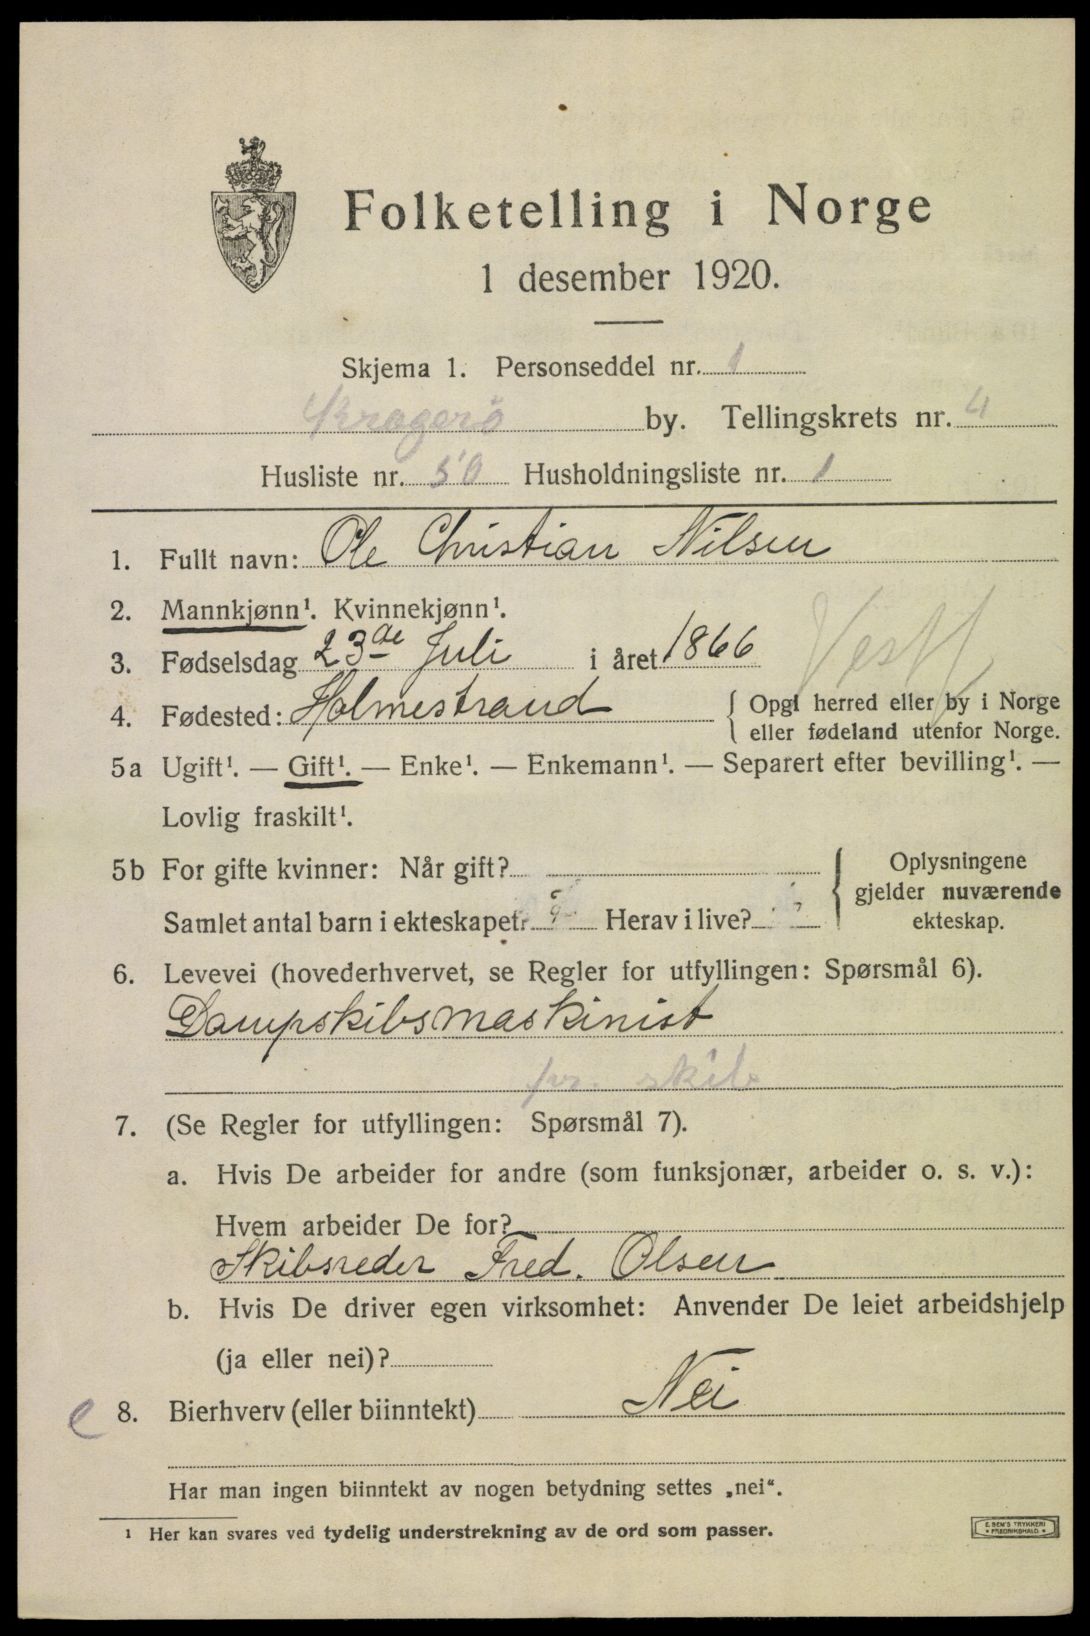 Folketelling i Norge
1 desember 1920.
Skjema 1. Personseddel nr. 1
Kragerö by. Tellingskrets nr. 4
Husliste nr. 50 Husholdningsliste nr. 1
1. Fullt navn: Ole Christian Nilsen
2. Mannkjønn¹. Kvinnekjønn¹.
3. Fødselsdag 23de Juli i året 1866
4. Fødested: Holmestrand { Opgi herred eller by i Norge
eller fødeland utenfor Norge.
Vestf
5a Ugift¹. — Gift¹. — Enke¹. — Enkemann¹. — Separert efter bevilling¹. —
Lovlig fraskilt¹.
5b For gifte kvinner: Når gift?
Samlet antal barn i ekteskapet? Herav i live?
{ Oplysningene
gjelder nuværende
ekteskap.
6. Levevei (hovederhvervet, se Regler for utfyllingen: Spørsmål 6).
Dampskibsmaskinist
pr. skib
7. (Se Regler for utfyllingen: Spørsmål 7).
a. Hvis De arbeider for andre (som funksjonær, arbeider o. s. v.):
Hvem arbeider De for?
Skibsreder Fred. Olsen
b. Hvis De driver egen virksomhet: Anvender De leiet arbeidshjelp
(ja eller nei)?
e 8. Bierhverv (eller biinntekt) Nei
Har man ingen biinntekt av nogen betydning settes „nei“.
¹ Her kan svares ved tydelig understrekning av de ord som passer.
E. SEM'S TRYKKERI
FREDRIKSHALD